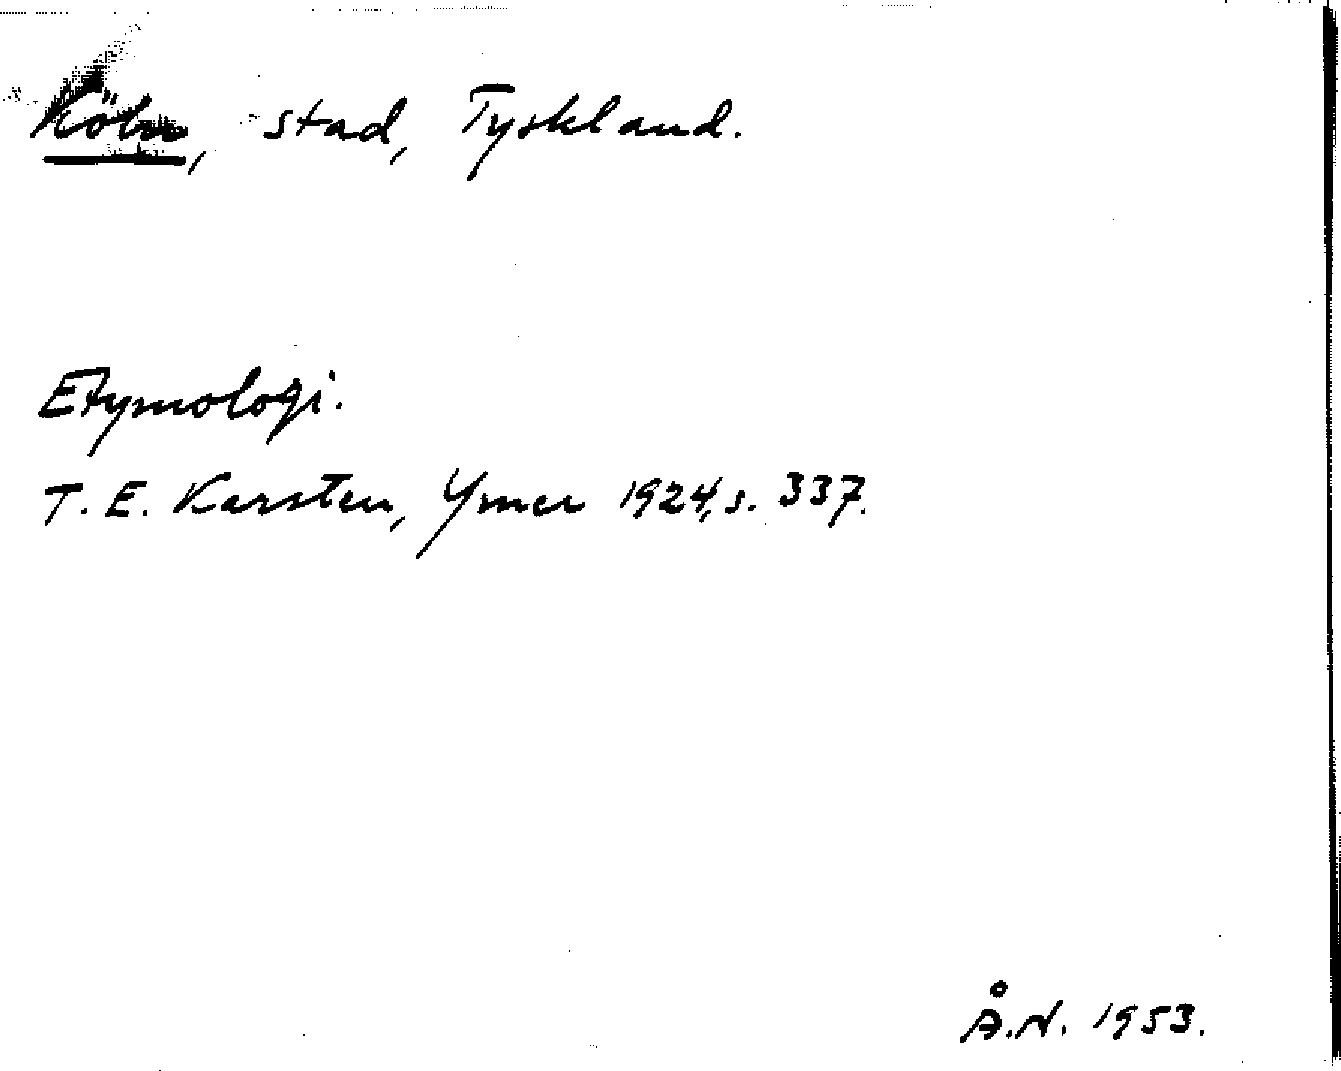 Köln, stad, Tyskland.
Etymologi.
T. E. Karsten, Ymer 1924, s. 337.
Å.N. 1953.